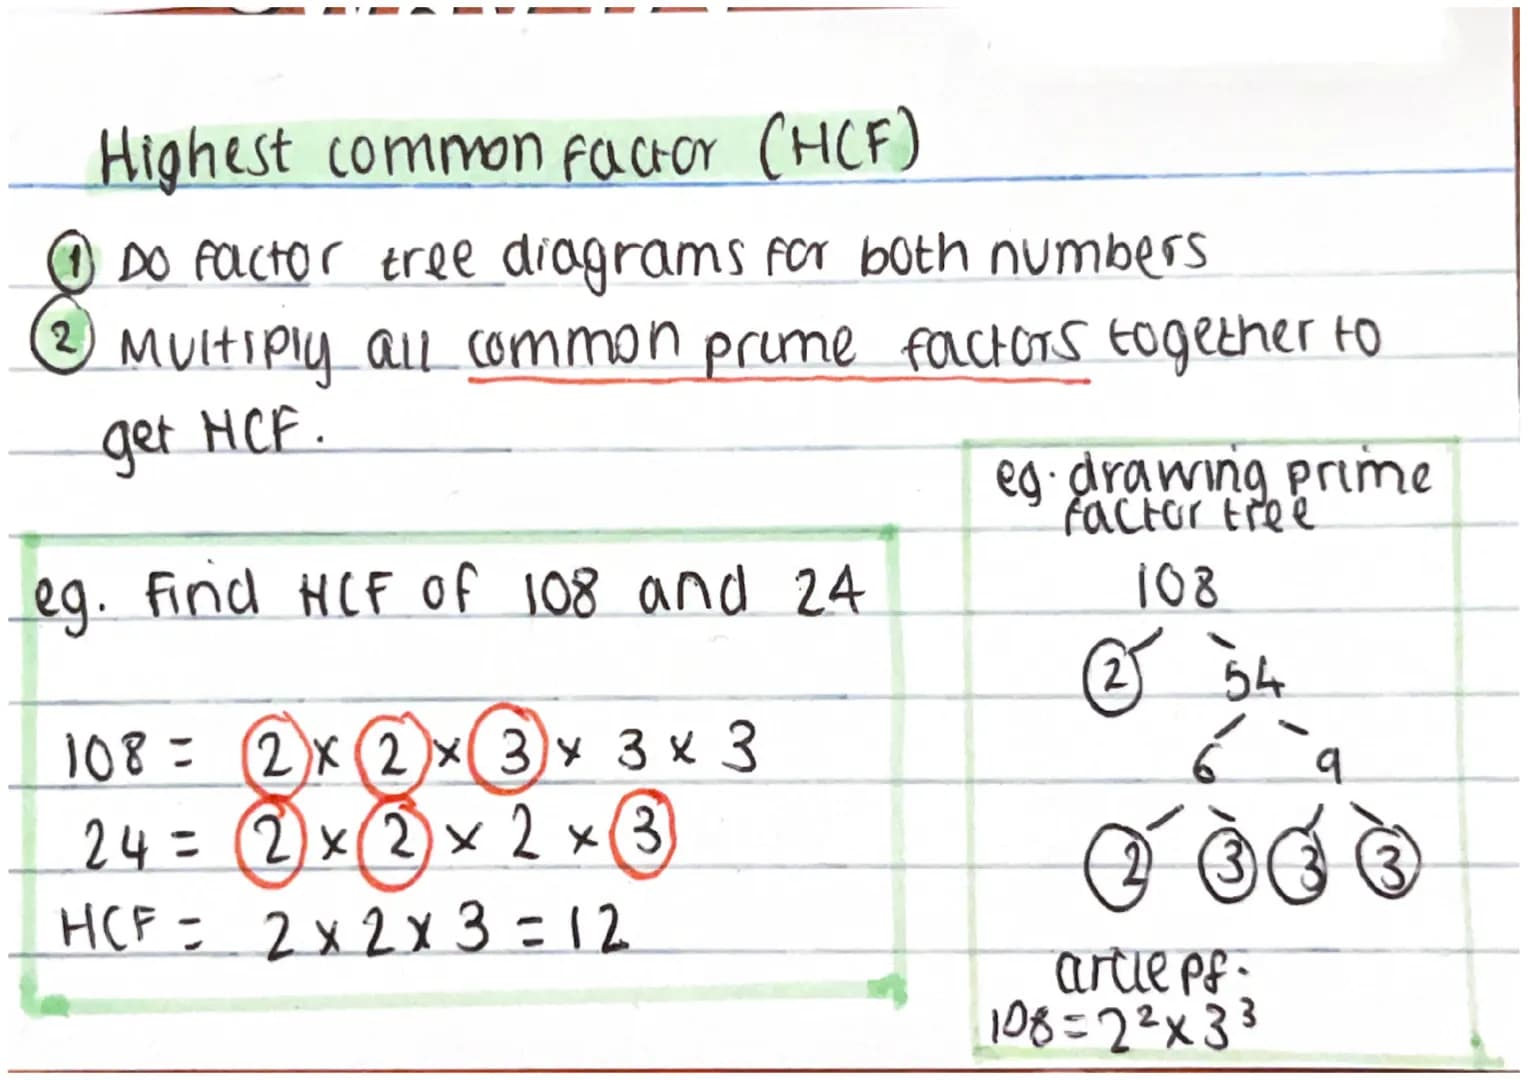 Highest common factor (HCF)
1 Do factor tree diagrams for both numbers
2 Multiply all common prime factors together to
get HCF.
eg. Find HCF of 108 and 24
108 = 2 × 2 × 3 × 3 × 3
24 = 2 × 2 × 2 × 3
HCF = 2 × 2 × 3 = 12
eg. drawing prime
factor tree
108
2 54
6 9
2 3 3 3
pf.
108 = 2² × 3³